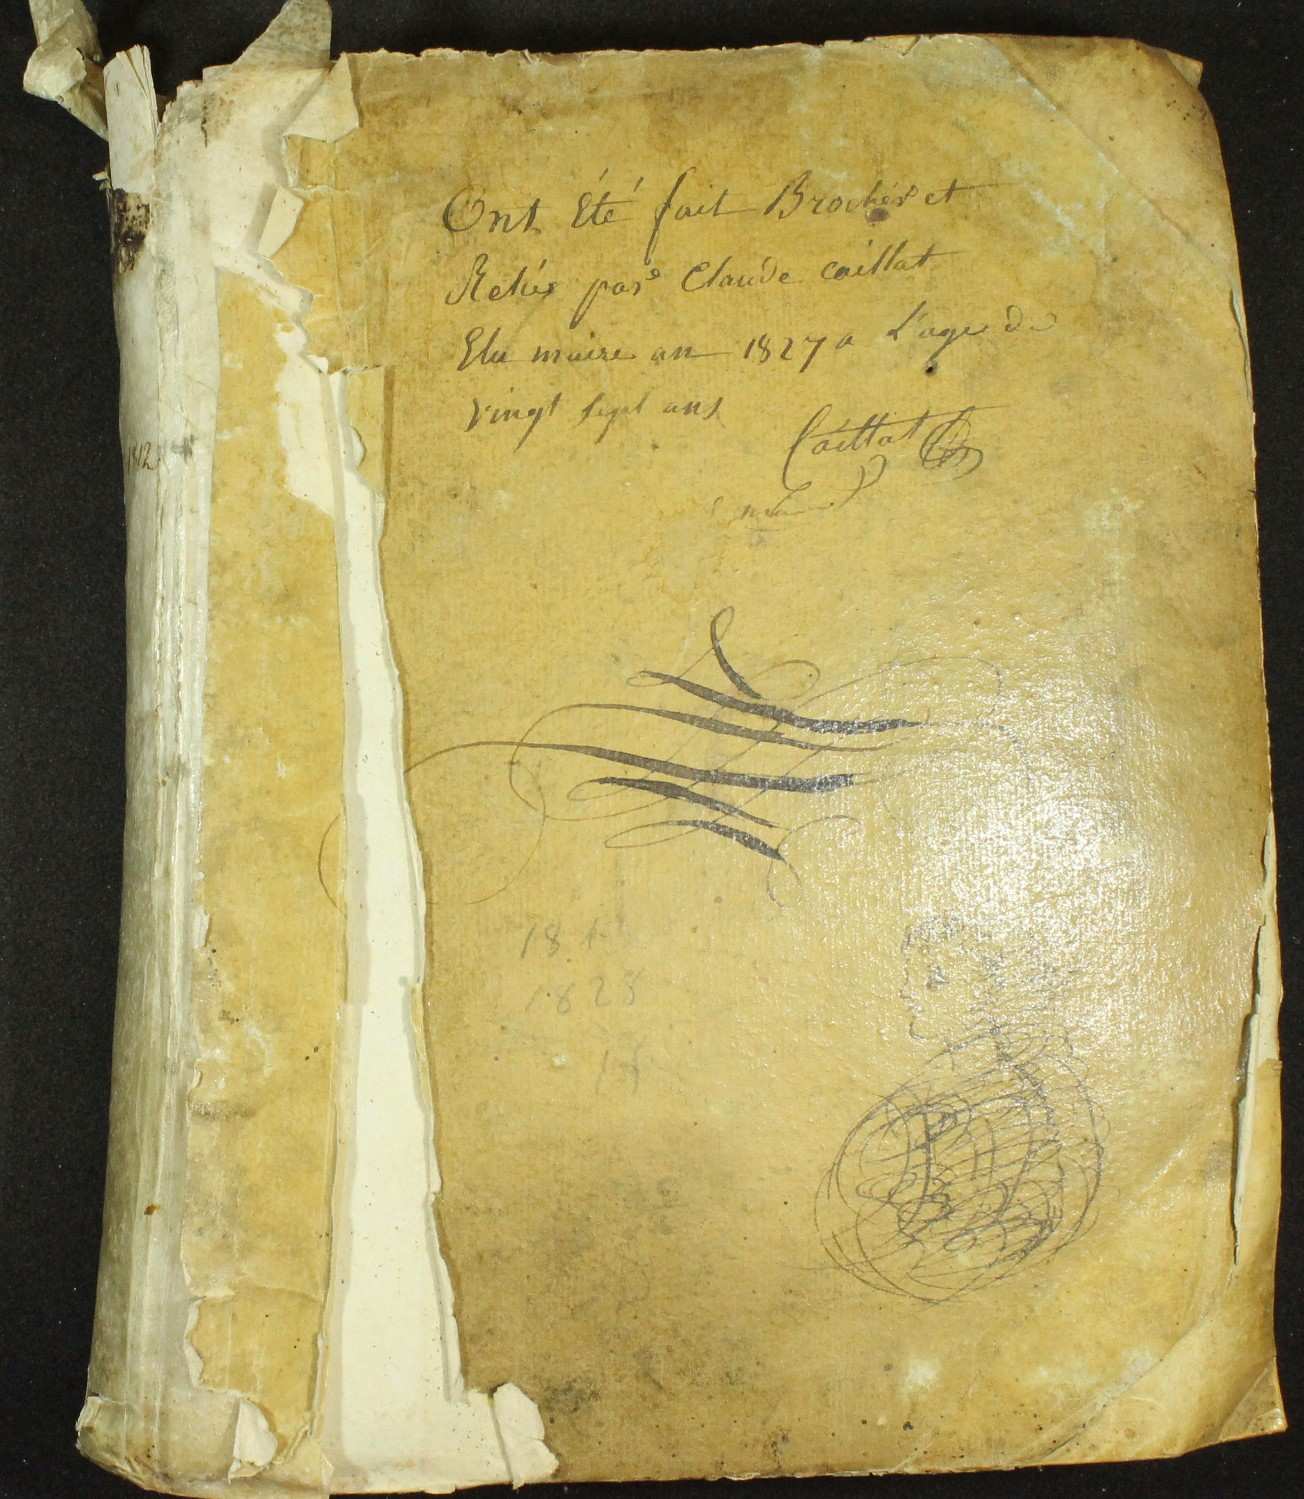 Ont Été fait Brochér et
Reliér par Claude caillat
Elu maire an 1827 a L'age de
vingt sept ans
Caillat
1828
18